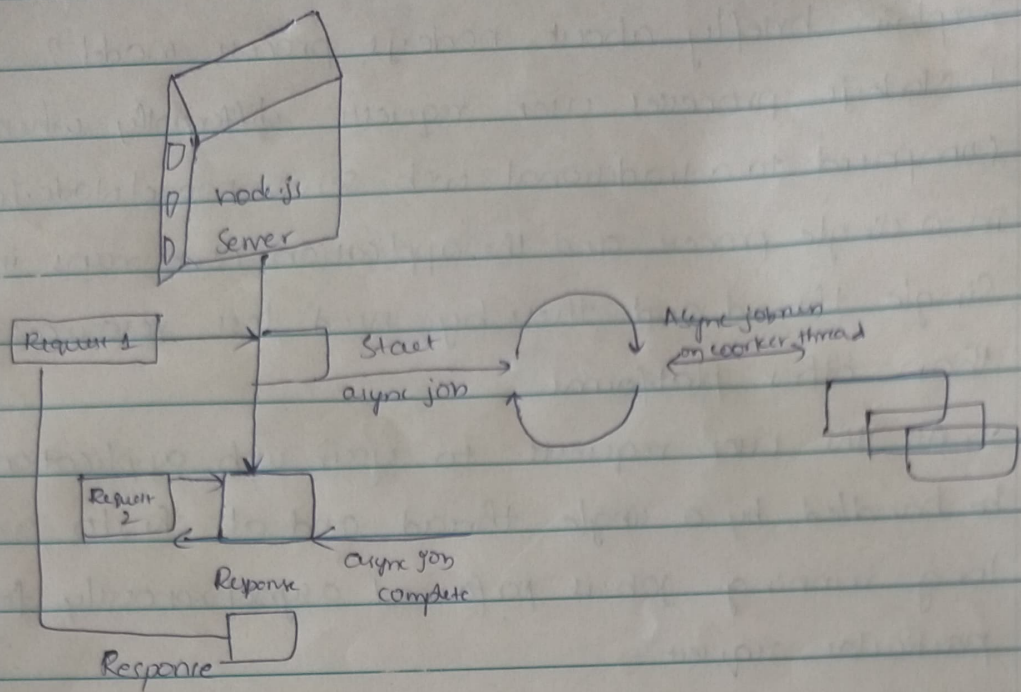 node.js
Server
Request 1
Start
async job
Async job run
on worker thread
Request
2
async job
complete
Response
Response